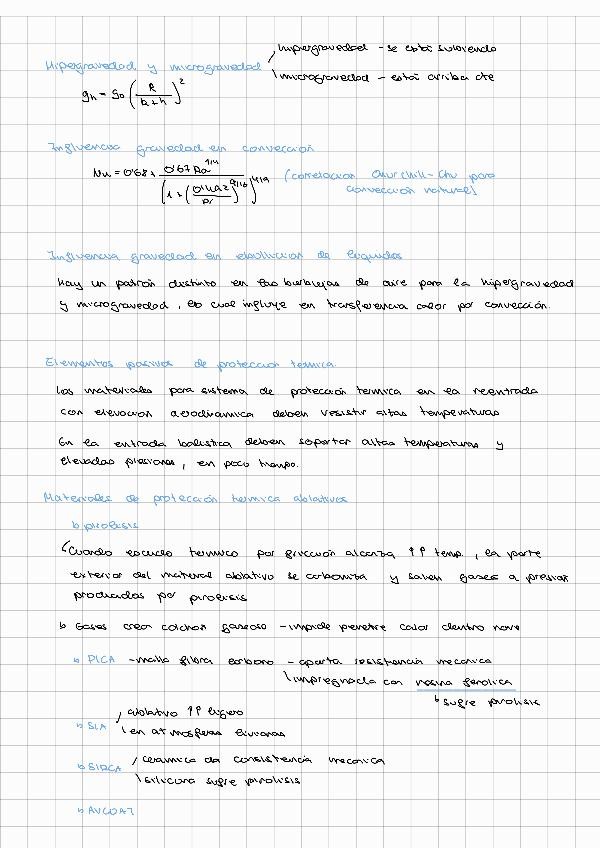 Hipergravedad y microgravedad / hipergravedad - se está subiendo
\ microgravedad - está arriba de
gh = g0 (R / (R+h))²
Influencia gravedad en convección
Nu = 0'68 + 0'67 Ra^1/4 / (1 + (0'492/Pr)^9/16)^4/9 (correlación Churchill-Chu para
convección natural)
Influencia gravedad en ebullición de líquidos
Hay un patrón distinto en las burbujas de aire para la hipergravedad
y microgravedad, lo cual influye en transferencia calor por convección.
Elementos pasivos de protección térmica.
Los materiales para sistema de protección térmica en la reentrada
con elevación aerodinámica deben resistir altas temperaturas
En la entrada balística deben soportar altas temperaturas y
elevadas presiones, en poco tiempo.
Materiales de protección térmica ablativos
↳ pirolisis
Cuando escudo térmico por fricción alcanza ↑↑ temp., la parte
exterior del material ablativo se carboniza y salen gases a presión
producidos por pirolisis
↳ Gases crean colchón gaseoso - impide penetre calor dentro nave
↳ PICA - malla fibra carbono - aporta resistencia mecánica
\ impregnada con resina fenólica
↳ sufre pirolisis
/ ablativo ↑↑ ligero
↳ SLA \ en atmósferas livianas
↳ SIRCA / cerámica da consistencia mecánica
\ silicona sufre pirolisis
↳ AVCOAT